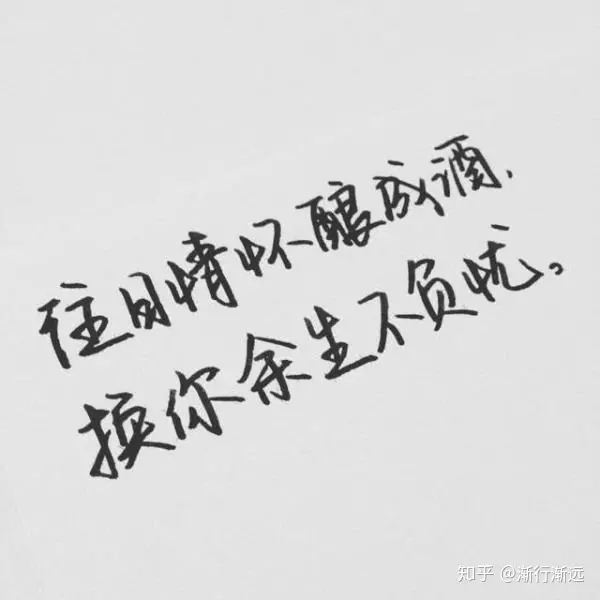 往日情怀酿成酒，
换你余生不负忧。
知乎 @渐行渐远